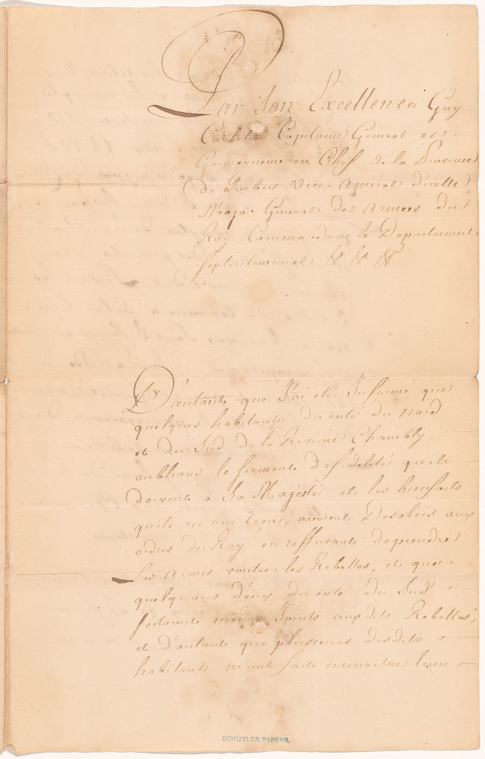 Par Son Excellence Guy
Carleton Capitaine General et
Gouverneur en Chef de la Province
de Quebec Vice-Amiral d'icelle
Major General des Armées du
Roy, Commandant le Departement
Septentrional &c &c &c
D'autant que J'ai été Informé que
quelques habitants du coté du Nord
et du Sud de la Riviere Chambly
oubliant le serment de fidelité qu'ils
doivent a Sa Majesté et les bienfaits
qu'ils en ont , avoient Desobeis aux
ordres du Roy en reffusant de prendre
Les Armes contre les Rebelles, et que
quelqu'uns d'eux du coté du Sud
s'étoient Joints auxdits Rebelles,
et d'autant que plusieurs desdits
habitants m'ont fait connoitre leur
SCHUYLER PAPERS.